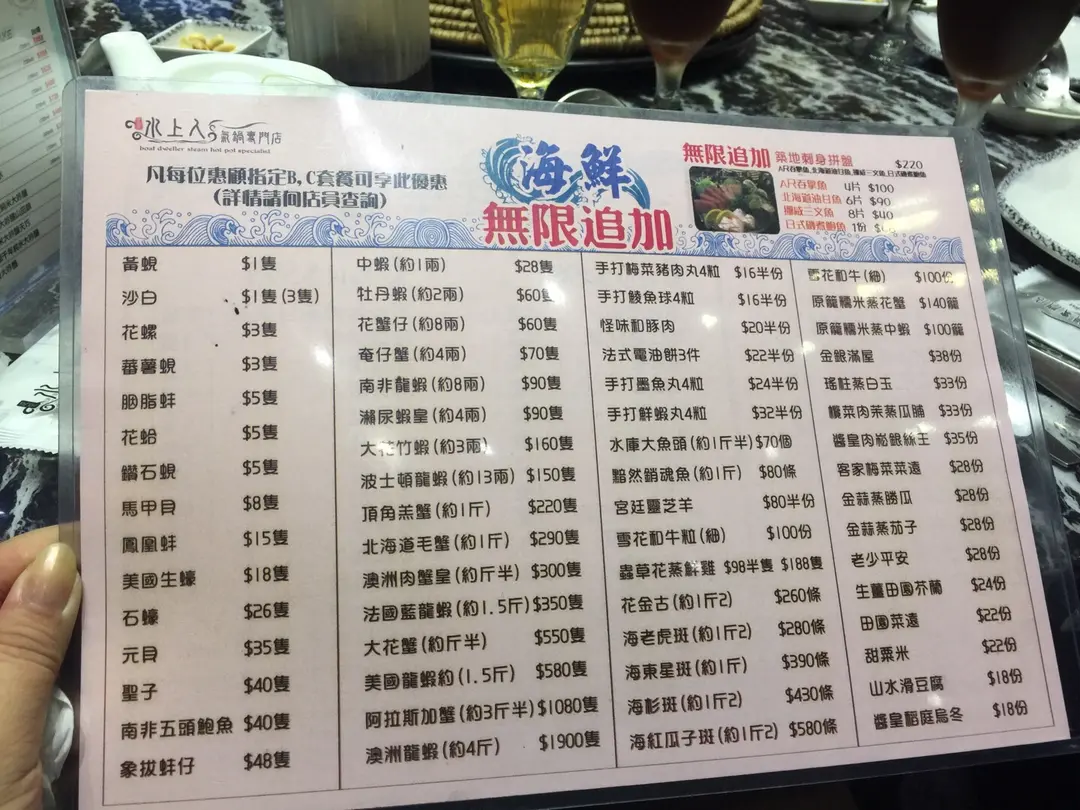 水上人 氣鍋專門店
boat dweller steam hot pot specialist
凡每位惠顧指定B,C套餐可享此優惠
(詳情請向店員查詢)
海鮮
無限追加
無限追加 築地刺身拼盤 $220
A尺吞拿魚, 北海道油甘魚, 挪威三文魚, 日式磯煮鮑魚
A尺吞拿魚 4片 $100
北海道油甘魚 6片 $90
挪威三文魚 8片 $40
日式磯煮鮑魚 1份
黃蜆 $1隻
沙白 $1隻(3隻)
花螺 $3隻
蕃薯蜆 $3隻
胭脂蚌 $5隻
花蛤 $5隻
鑽石蜆 $5隻
馬甲貝 $8隻
鳳凰蚌 $15隻
美國生蠔 $18隻
石蠔 $26隻
元貝 $35隻
聖子 $40隻
南非五頭鮑魚 $40隻
象拔蚌仔 $48隻
中蝦(約1兩) $28隻
牡丹蝦(約2兩) $60隻
花蟹仔(約8兩) $60隻
奄仔蟹(約4兩) $70隻
南非龍蝦(約8兩) $90隻
瀨尿蝦皇(約4兩) $90隻
大花竹蝦(約3兩) $160隻
波士頓龍蝦(約13兩) $150隻
頂角羔蟹(約1斤) $220隻
北海道毛蟹(約1斤) $290隻
澳洲肉蟹皇(約斤半) $300隻
法國藍龍蝦(約1.5斤) $350隻
大花蟹(約斤半) $550隻
美國龍蝦約(1.5斤) $580隻
阿拉斯加蟹(約3斤半) $1080隻
澳洲龍蝦(約4斤) $1900隻
手打梅菜豬肉丸4粒 $16半份
手打鯪魚球4粒 $16半份
怪味和豚肉 $20半份
法式電油餅3件 $22半份
手打墨魚丸4粒 $24半份
手打鮮蝦丸4粒 $32半份
水庫大魚頭(約1斤半) $70個
黯然銷魂魚(約1斤) $80條
宮廷靈芝羊 $80半份
雪花和牛粒(細) $100份
蟲草花蒸鮮雞 $98半隻 $188隻
花金古(約1斤2) $260條
海老虎斑(約1斤2) $280條
海東星斑(約1斤) $390條
海杉斑(約1斤2) $430條
海紅瓜子斑(約1斤2) $580條
雪花和牛(細) $100份
原籠糯米蒸花蟹 $140籠
原籠糯米蒸中蝦 $100籠
金銀滿屋 $38份
瑤柱蒸白玉 $33份
欖菜肉茸蒸瓜脯 $33份
醬皇肉崧銀絲王 $35份
客家梅菜菜遠 $28份
金蒜蒸勝瓜 $28份
金蒜蒸茄子 $28份
老少平安 $28份
生薑田園芥蘭 $24份
田園菜遠 $22份
甜粟米 $22份
山水滑豆腐 $18份
醬皇稻庭烏冬 $18份